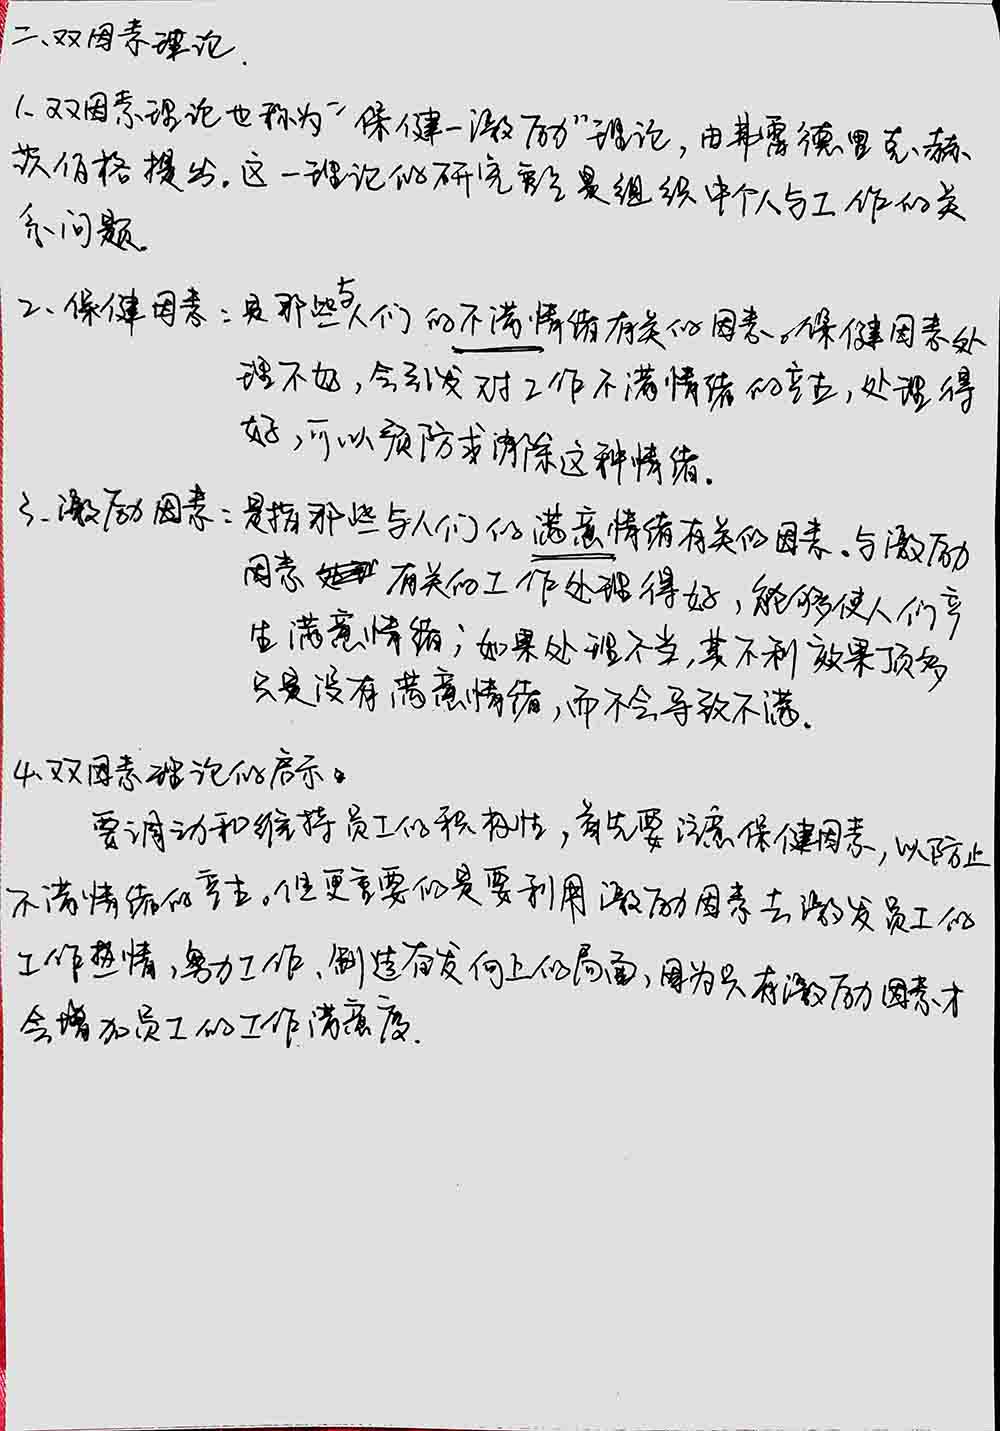 二、双因素理论.
1、双因素理论也称为“保健-激励”理论，由弗雷德里克·赫
茨伯格提出。这一理论的研究重点是组织中个人与工作的关
系问题。
2、保健因素：是那些与人们的不满情绪有关的因素。保健因素处
理不好，会引发对工作不满情绪的产生，处理得
好，可以预防或消除这种情绪。
3、激励因素：是指那些与人们的满意情绪有关的因素。与激励
因素 有关的工作处理得好，能够使人们产
生满意情绪；如果处理不当，其不利效果顶多
只是没有满意情绪，而不会导致不满。
4、双因素理论的启示。
要调动和维持员工的积极性，首先要注意保健因素，以防止
不满情绪的产生。但更重要的是要利用激励因素去激发员工的
工作热情，努力工作、创造奋发向上的局面，因为只有激励因素才
会增加员工的工作满意度.